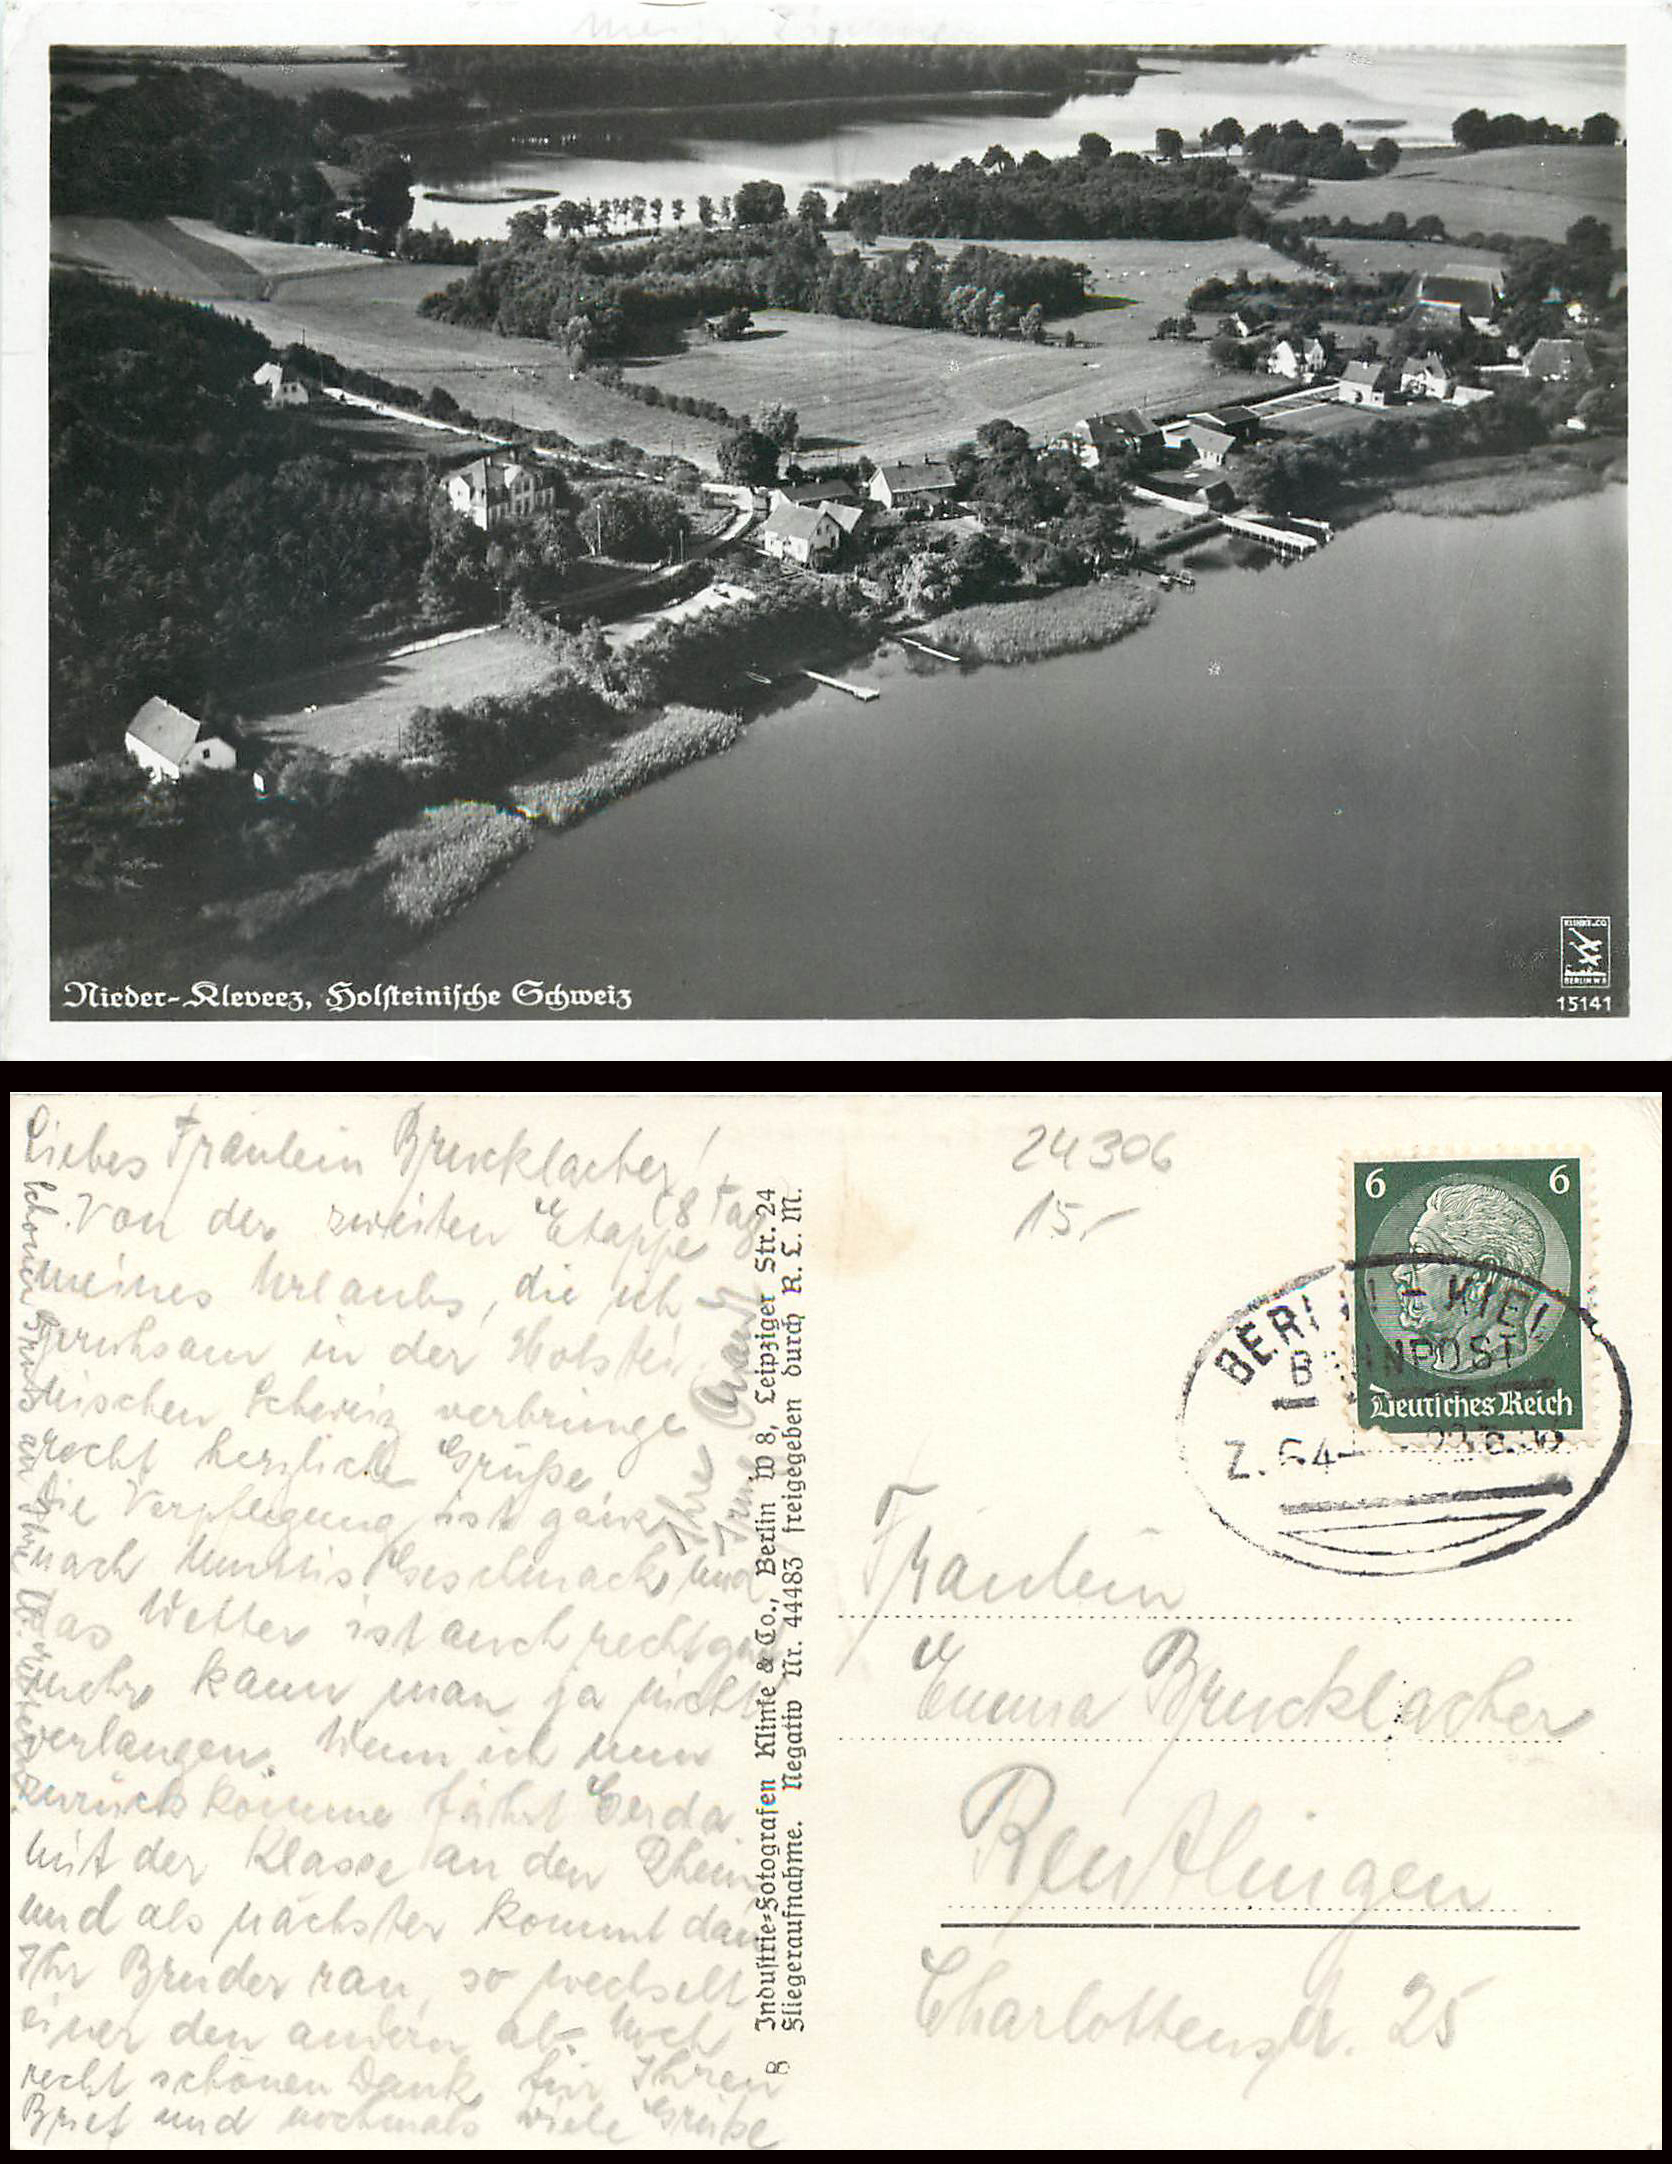 KLINKE & CO
BERLIN W 8
15141
Nieder-Kleveez, Holsteinische Schweiz
Liebes Fräulein Brucklacher!
Von der zweiten Etappe (8 Tag
meines Urlaubs, die ich
geruhsam in der Holstei
nischen Schweiz verbringe
recht herzliche Grüße.
Die Verpflegung ist ganz
nach Geschmack und
das Wetter ist auch recht gut
mehr kann man ja nicht
verlangen. Wenn ich nun
zurückkomme fährt Gerda
mit der Klasse an den Rhein
und als nächster kommt dann
Ihr Bruder ran, so wechselt
einer den andern ab. Noch
recht schönen Dank für Ihren
Brief und nochmals viele Grüße
Ihre
Schönen Gruß an Ihre
B
Industrie-Fotografen Klinke & Co., Berlin W 8, Leipziger Str. 24
Fliegeraufnahme. Negativ Nr. 44483 freigegeben durch R. L. M.
24306
15,-
6 6
Deutsches Reich
BERLIN - KIEL
BAHNPOST
Z. 64
Fräulein
Emma Brucklacher
Reutlingen
Charlottenstr. 25